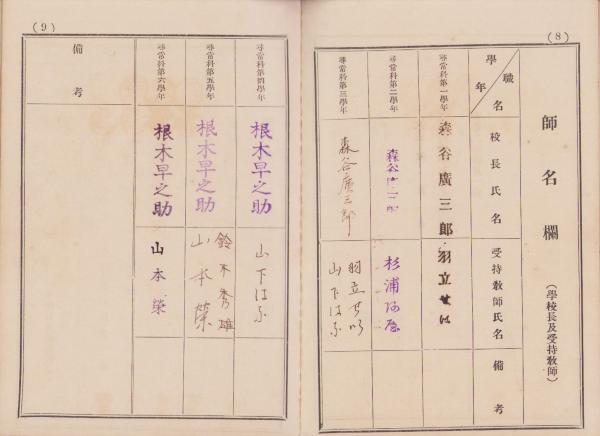 (8)
師名欄
(學校長及受持敎師)
學年
職名
校長氏名
受持敎師氏名
備考
尋常科第一學年
森谷廣三郎
羽立せい
尋常科第二學年
森谷廣三郎
杉浦
尋常科第三學年
森谷廣三郎
羽立せい
山下はる
(9)
尋常科第四學年
根木早之助
山下はる
尋常科第五學年
根木早之助
鈴木秀雄
山本榮
尋常科第六學年
根木早之助
山本榮
備考